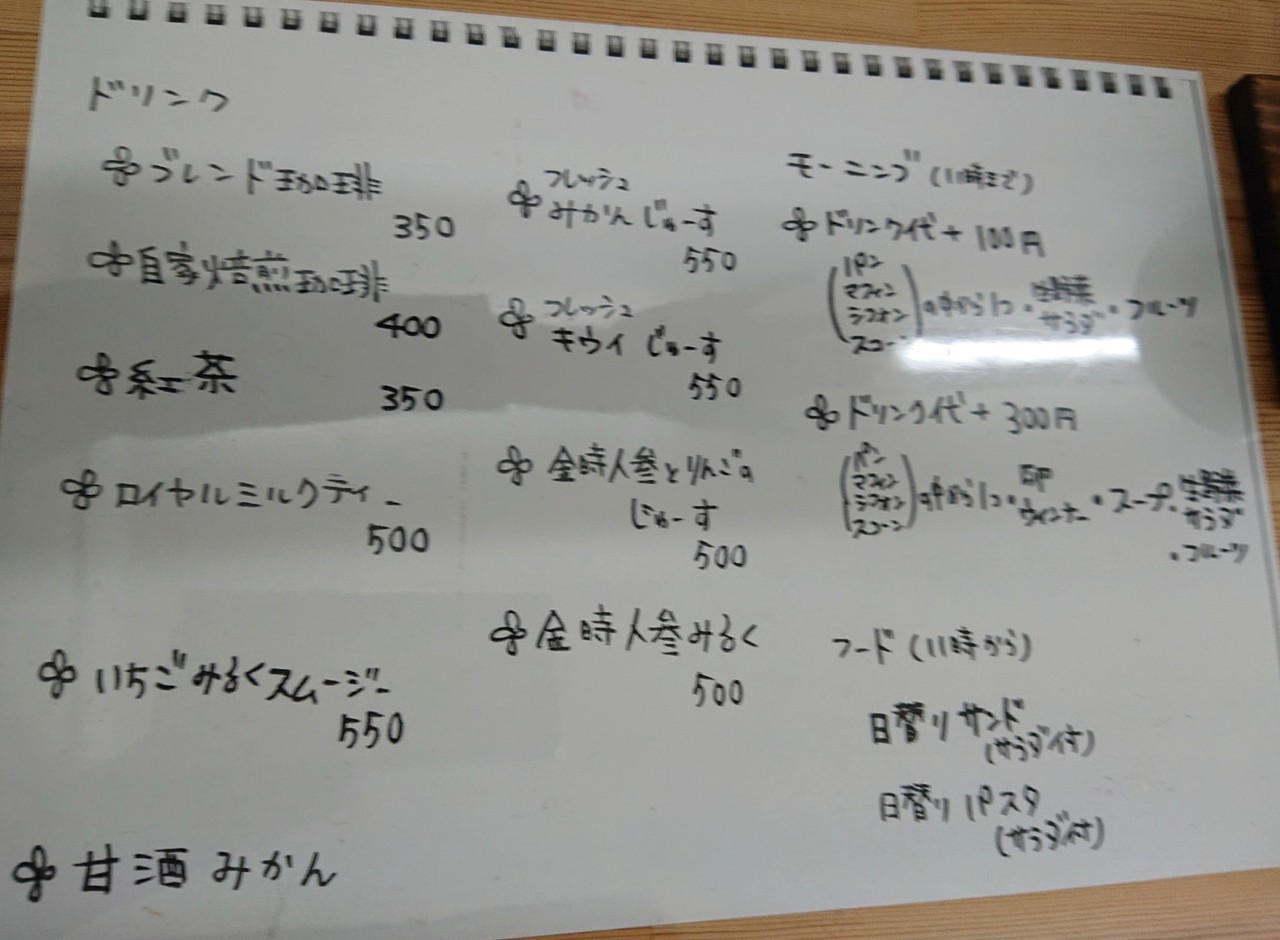 ドリンク
ブレンド珈琲
350
自家焙煎珈琲
400
紅茶
350
ロイヤルミルクティー
500
いちごみるくスムージー
550
甘酒みかん
フレッシュ
みかんじゅーす
550
フレッシュ
キウイじゅーす
550
金時人参とりんごの
じゅーす
500
金時人参みるく
500
モーニング(11時まで)
ドリンク代+100円
パン
マフィン
シフォン
スコーン
の中から1つ・生野菜サラダ・フルーツ
ドリンク代+300円
パン
マフィン
シフォン
スコーン
の中から1つ・卵ウィンナー・スープ・生野菜サラダ
・フルーツ
フード(11時から)
日替りサンド
(サラダ付)
日替りパスタ
(サラダ付)